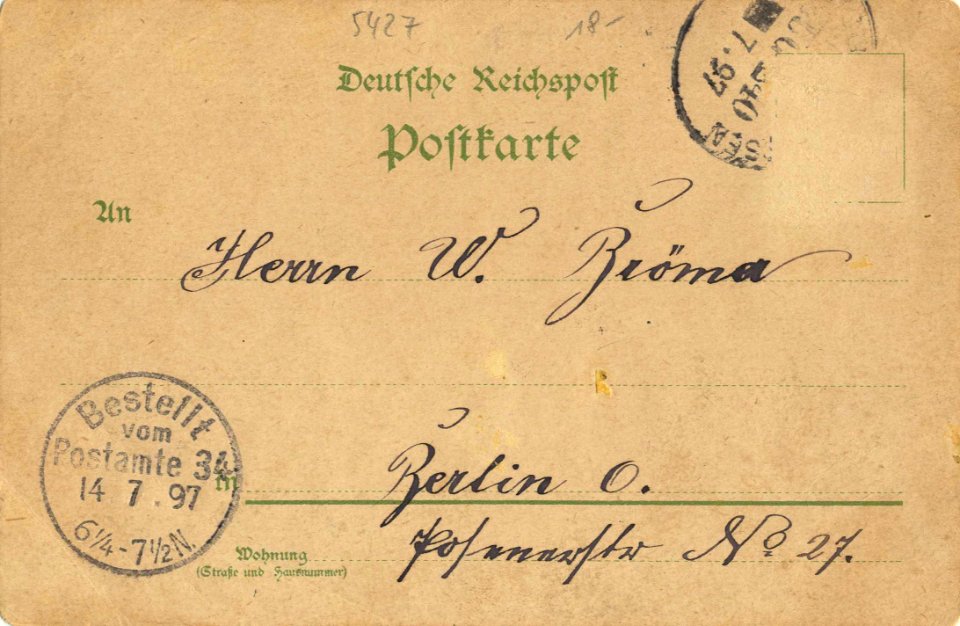 5427 18-
Deutsche Reichspost
Postkarte
7. 97
An
Herrn W. Bröma
Bestellt
vom
Postamte 34
14 7. 97
6¼-7½N.
in Berlin O.
Wohnung
(Straße und Hausnummer)
Posenerstr No 27.